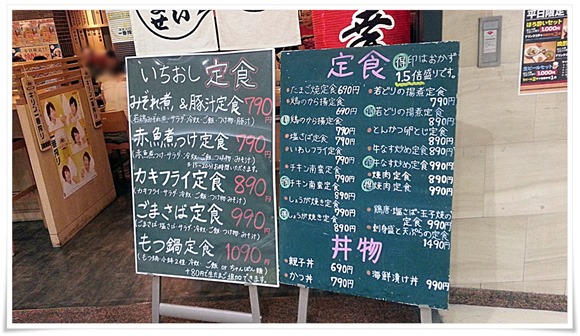 いちおし定食
みぞれ煮&豚汁定食 790
赤魚煮つけ定食 790円
カキフライ定食 890
(カキフライ・サラダ・冷奴・ご飯・つけ物・みそ汁)
ごまさば定食 990円
(ごまさば・塩サバ・サラダ・冷奴・ご飯・つけ物・みそ汁)
もつ鍋定食 1090円
(もつ鍋・小鉢2種・冷奴・ご飯 or ちゃんぽん麺)
定食
得印はおかず
1.5倍盛りです。
・たまご焼定食 690円
・鶏のから揚定食
690円
得鶏のから揚定食
790円
・塩さば定食
790円
・いわしフライ定食
790円
・チキン南蛮定食
790円
得チキン南蛮定食
890円
・しょうが焼き定食
790円
得しょうが焼き定食
890円
・若どりの揚煮定食
790円
得若どりの揚煮定食
890円
・とんかつ卵とじ定食
890円
・牛なす炒め定食 890円
得牛なす炒め定食 990円
・焼肉定食 890円
得焼肉定食 990円
・鶏唐・塩さば・玉子焼の
定食 990円
・刺身盛と天ぷらの定食
1490円
丼物
・親子丼 690円
・かつ丼 790円
・海鮮漬け丼 990円